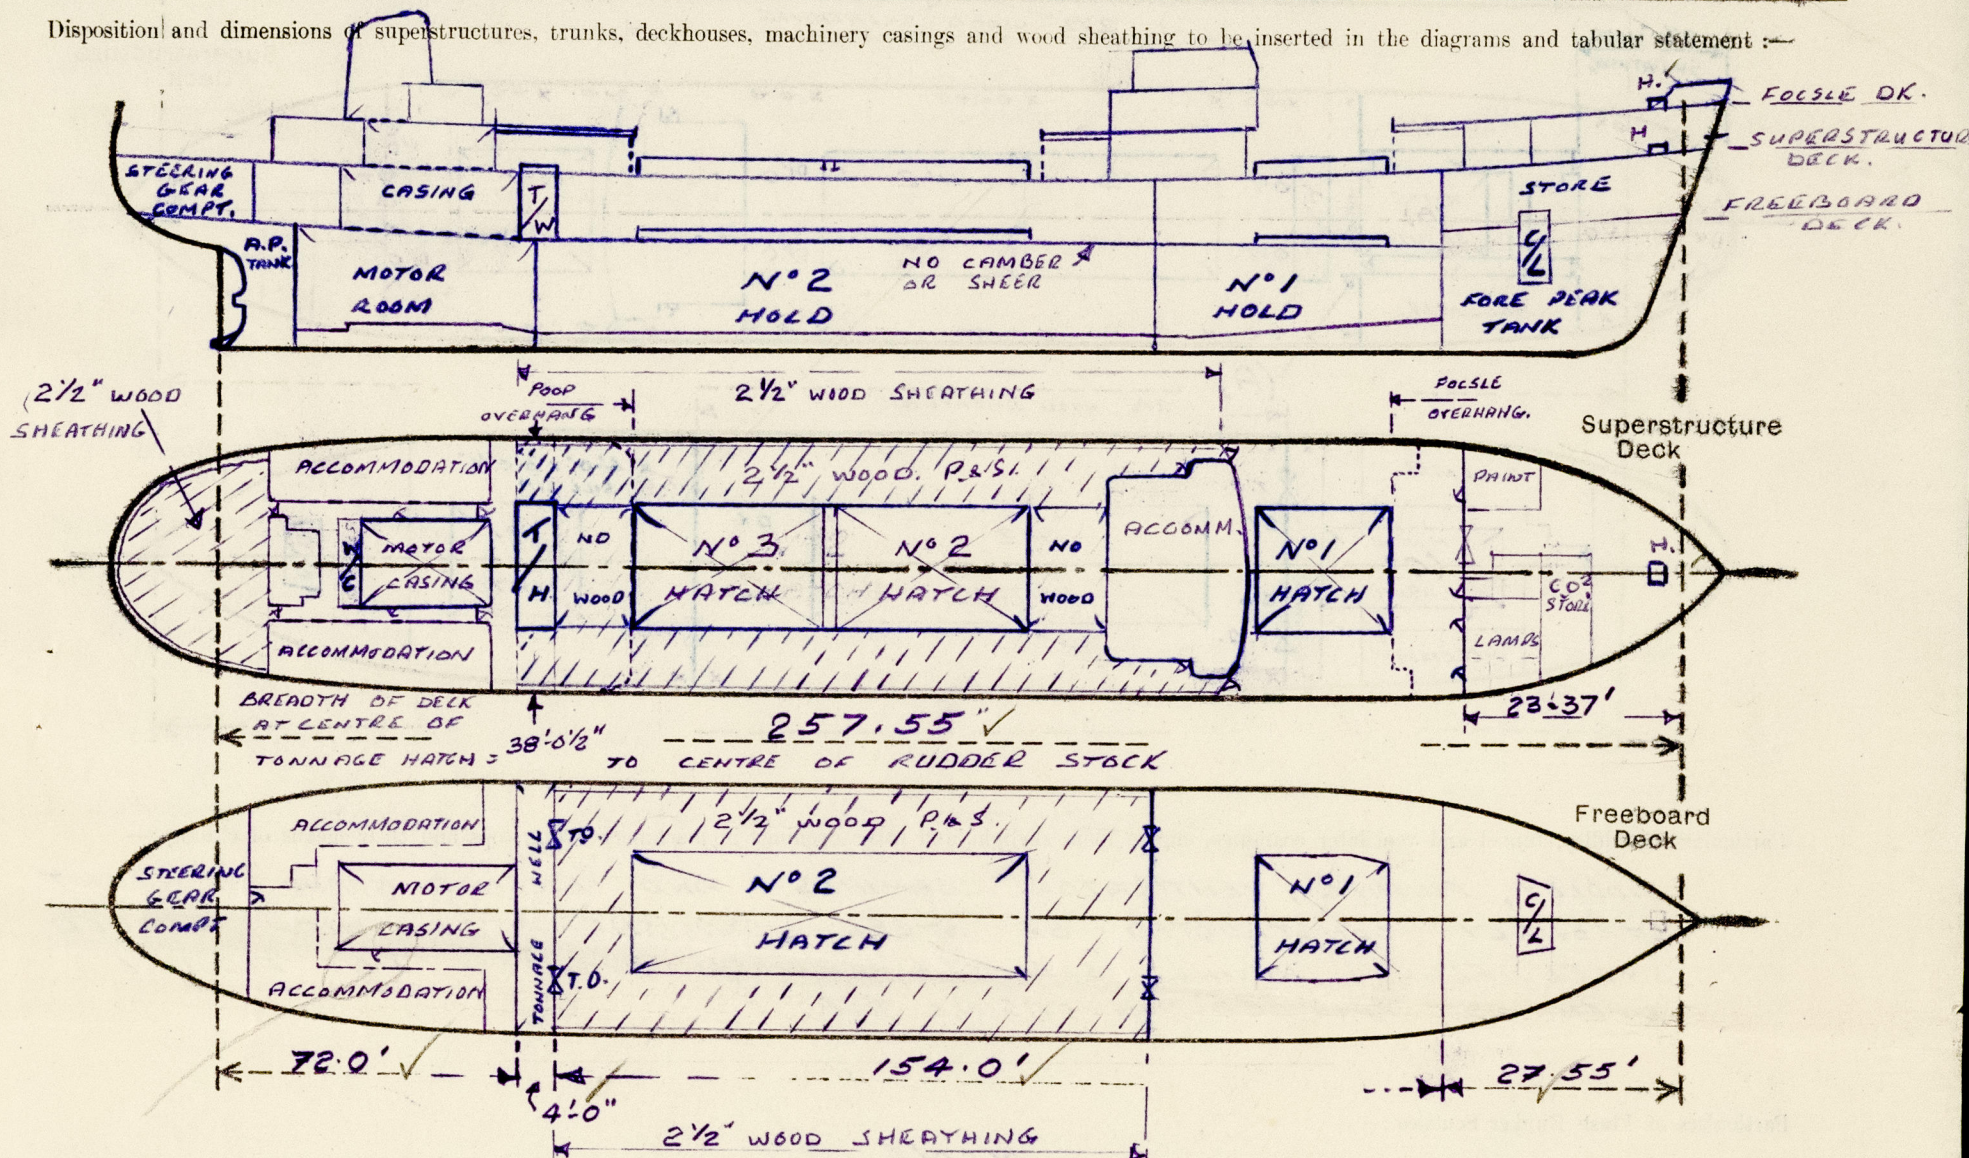 Disposition and dimensions of superstructures, trunks, deckhouses, machinery casings and wood sheathing to be inserted in the diagrams and tabular statement :—
H.
FOCSLE DK.
H
SUPERSTRUCTUR
DECK.
STEERING
GEAR
COMPT.
CASING
T/W
STORE
FREEBOARD
DECK.
A.P.
TANK
MOTOR
ROOM
Nº 2
HOLD
NO CAMBER
OR SHEER
Nº 1
HOLD
C/L
FORE PEAK
TANK
2½" WOOD
SHEATHING
POOP
OVERHANG
2½" WOOD SHEATHING
FOCSLE
OVERHANG.
Superstructure
Deck
ACCOMMODATION
2½" WOOD. P.&S.
PAINT
MOTOR
CASING
T/H
NO
WOOD
Nº 3
HATCH
Nº 2
HATCH
NO
WOOD
ACCOMM.
Nº 1
HATCH
H.
CO2
STORE
LAMPS
ACCOMMODATION
BREADTH OF DECK
AT CENTRE OF
TONNAGE HATCH = 38'-0½"
257.55"
TO CENTRE OF RUDDER STOCK
23.37'
Freeboard
Deck
ACCOMMODATION
2½" WOOD P.&S.
STEERING
GEAR
COMPT
MOTOR
CASING
TONNAGE WELL
T.O.
Nº 2
HATCH
Nº 1
HATCH
C/L
T.O.
ACCOMMODATION
72.0'
4'-0"
154.0'
27.55'
2½" WOOD SHEATHING